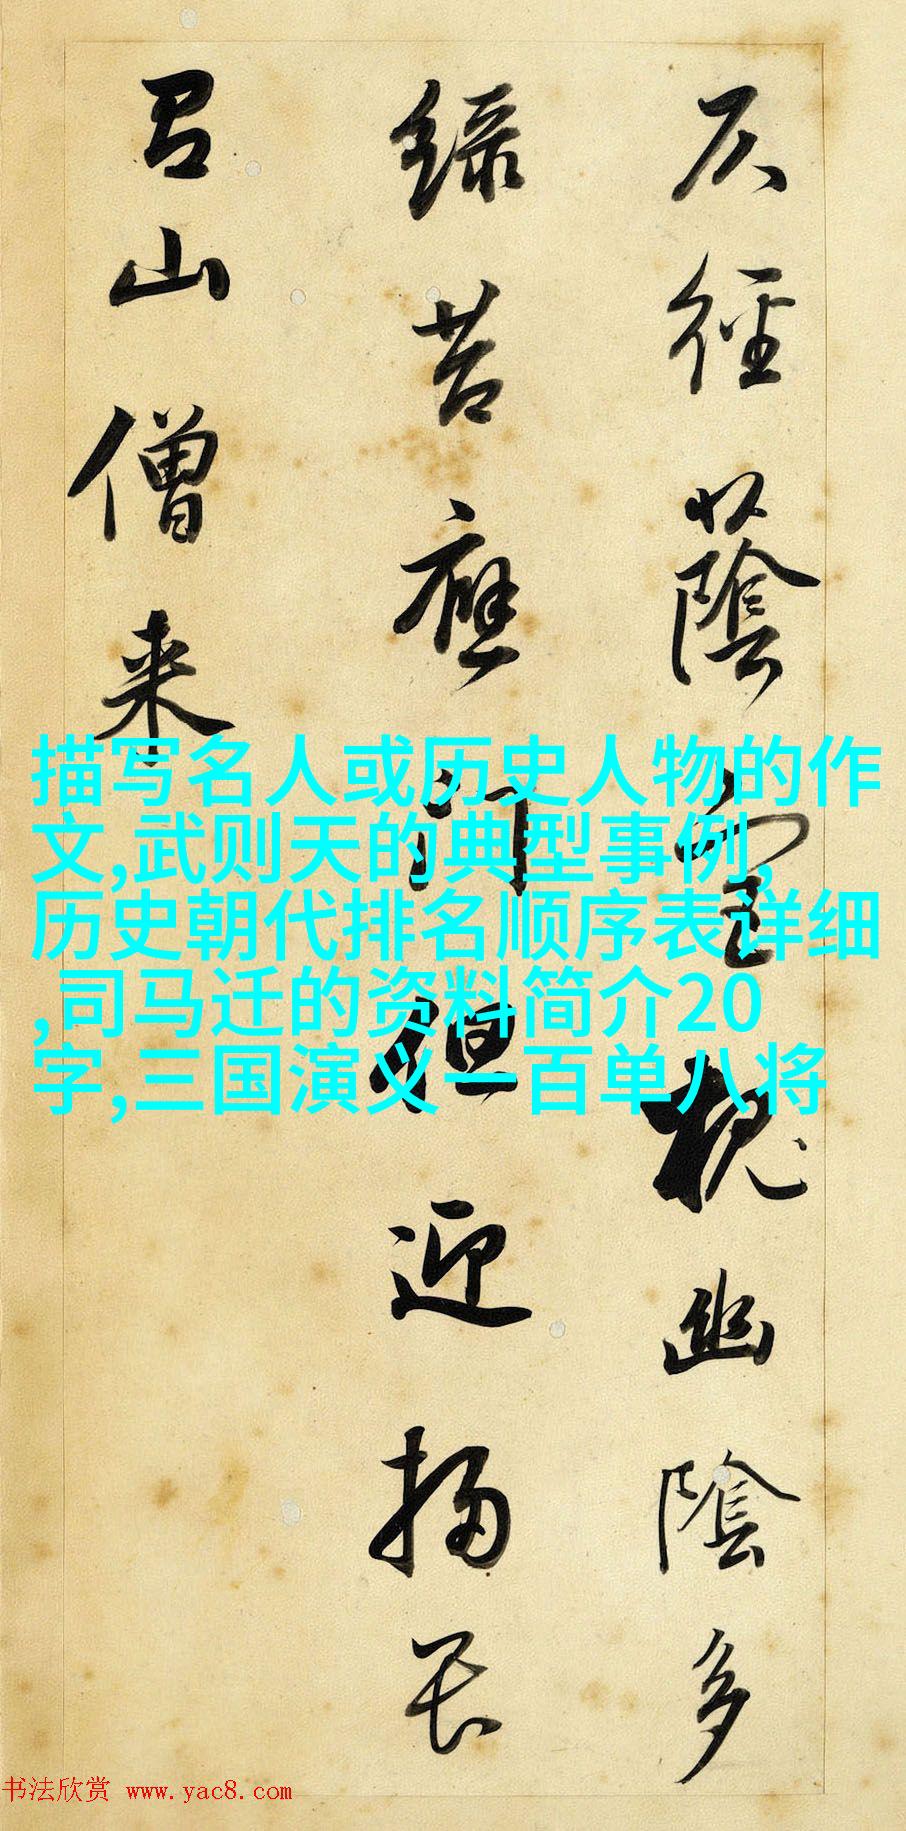 仄徑蔭宮槐幽陰多
綠苔應門但迎掃
山僧来
描写名人或历史人物的作
文,武则天的典型事例,
历史朝代排名顺序表详细
,司马迁的资料简介20
字,三国演义一百单八将
书法欣赏 www.yac8.com